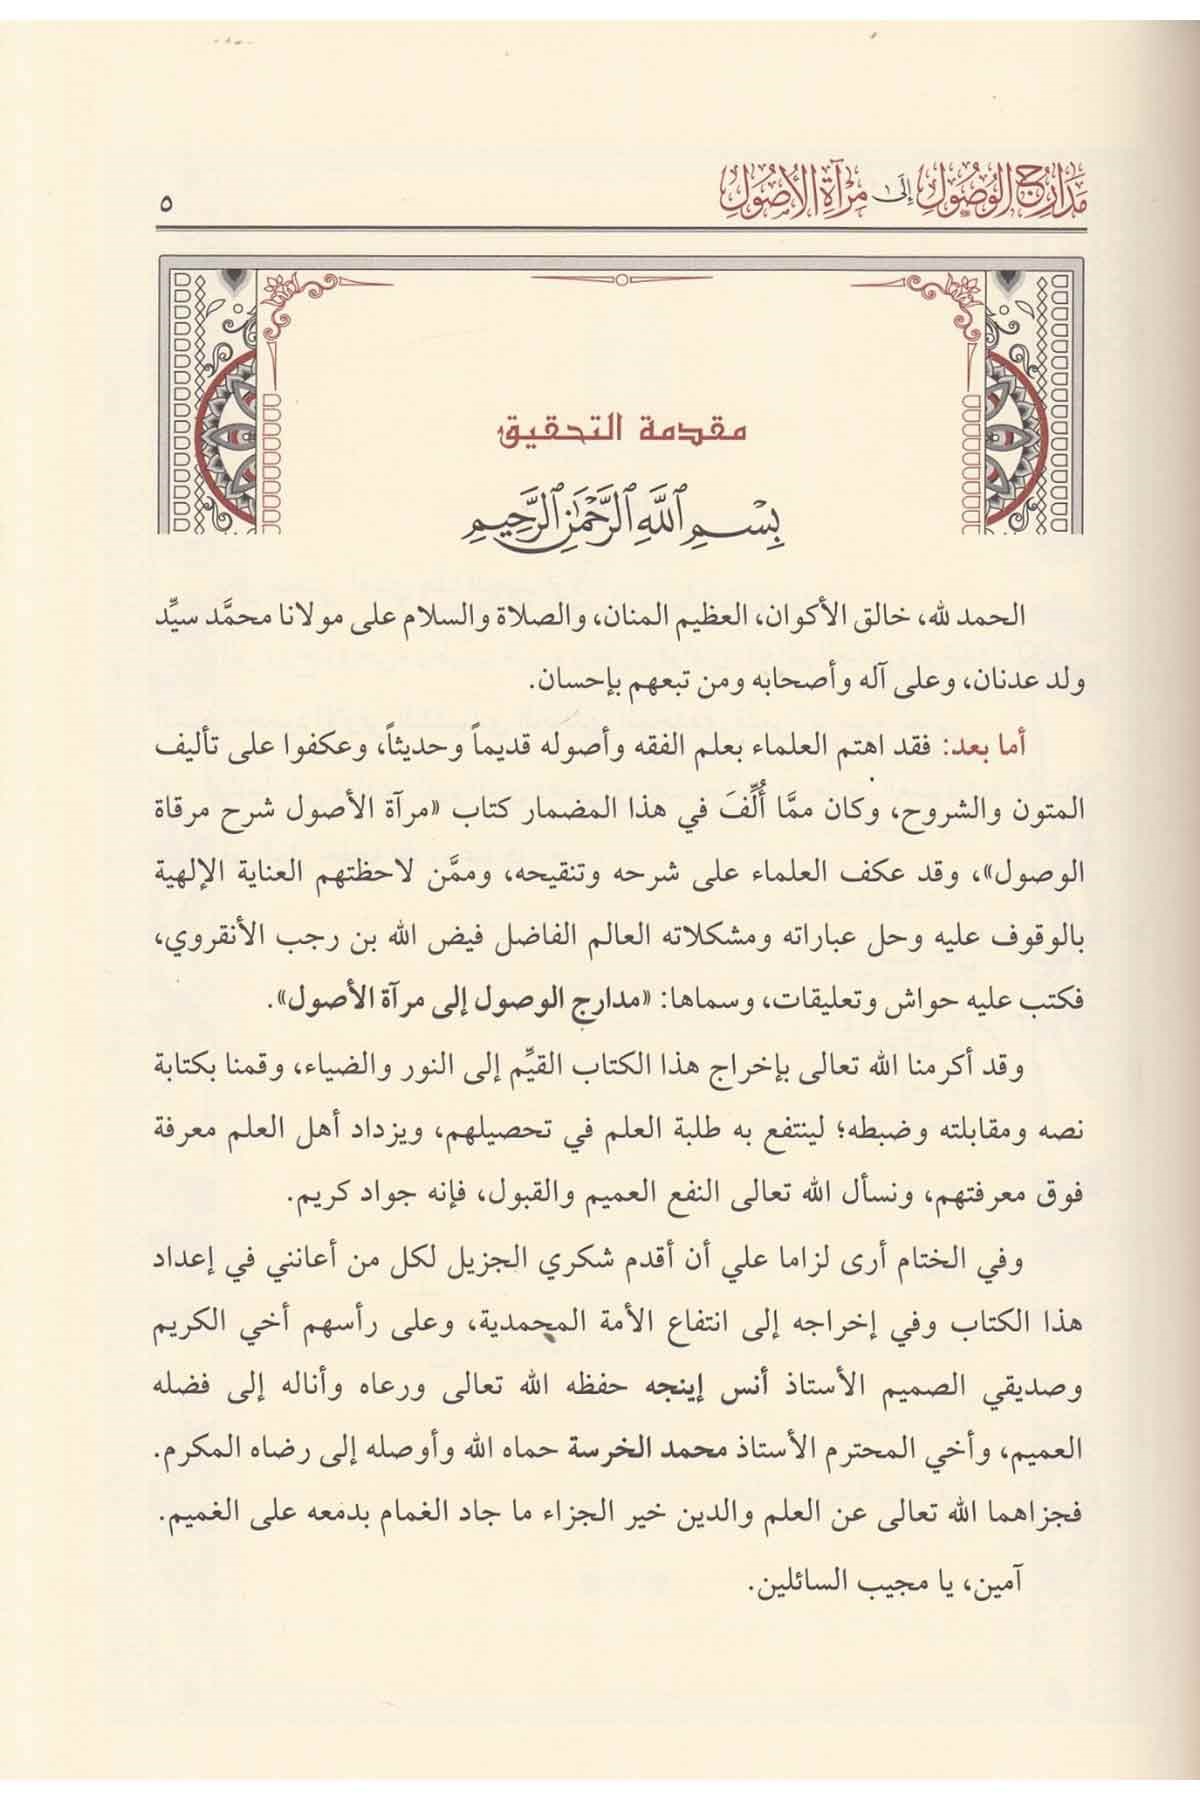 مَدَارِجُ الْوُصُولِ إِلَى مِرْآةِ الْأُصُولِ ٥
مقدمة التحقيق
بِسْمِ ٱللَّهِ ٱلرَّحْمَٰنِ ٱلرَّحِيمِ
الحمد لله، خالق الأكوان، العظيم المنان، والصلاة والسلام على مولانا محمَّد سيِّد
ولد عدنان، وعلى آله وأصحابه ومن تبعهم بإحسان.
أما بعد: فقد اهتم العلماء بعلم الفقه وأصوله قديماً وحديثاً، وعكفوا على تأليف
المتون والشروح، وكان ممَّا أُلِّفَ في هذا المضمار كتاب «مرآة الأصول شرح مرقاة
الوصول»، وقد عكف العلماء على شرحه وتنقيحه، وممَّن لاحظتهم العناية الإلهية
بالوقوف عليه وحل عباراته ومشكلاته العالم الفاضل فيض الله بن رجب الأنقروي،
فكتب عليه حواش وتعليقات، وسماها: «مدارج الوصول إلى مرآة الأصول».
وقد أكرمنا الله تعالى بإخراج هذا الكتاب القيِّم إلى النور والضياء، وقمنا بكتابة
نصه ومقابلته وضبطه؛ لينتفع به طلبة العلم في تحصيلهم، ويزداد أهل العلم معرفة
فوق معرفتهم، ونسأل الله تعالى النفع العميم والقبول، فإنه جواد كريم.
وفي الختام أرى لزاما علي أن أقدم شكري الجزيل لكل من أعانني في إعداد
هذا الكتاب وفي إخراجه إلى انتفاع الأمة المحمدية، وعلى رأسهم أخي الكريم
وصديقي الصميم الأستاذ أنس إينجه حفظه الله تعالى ورعاه وأناله إلى فضله
العميم، وأخي المحترم الأستاذ محمد الخرسة حماه الله وأوصله إلى رضاه المكرم.
فجزاهما الله تعالى عن العلم والدين خير الجزاء ما جاد الغمام بدمعه على الغميم.
آمين، يا مجيب السائلين.